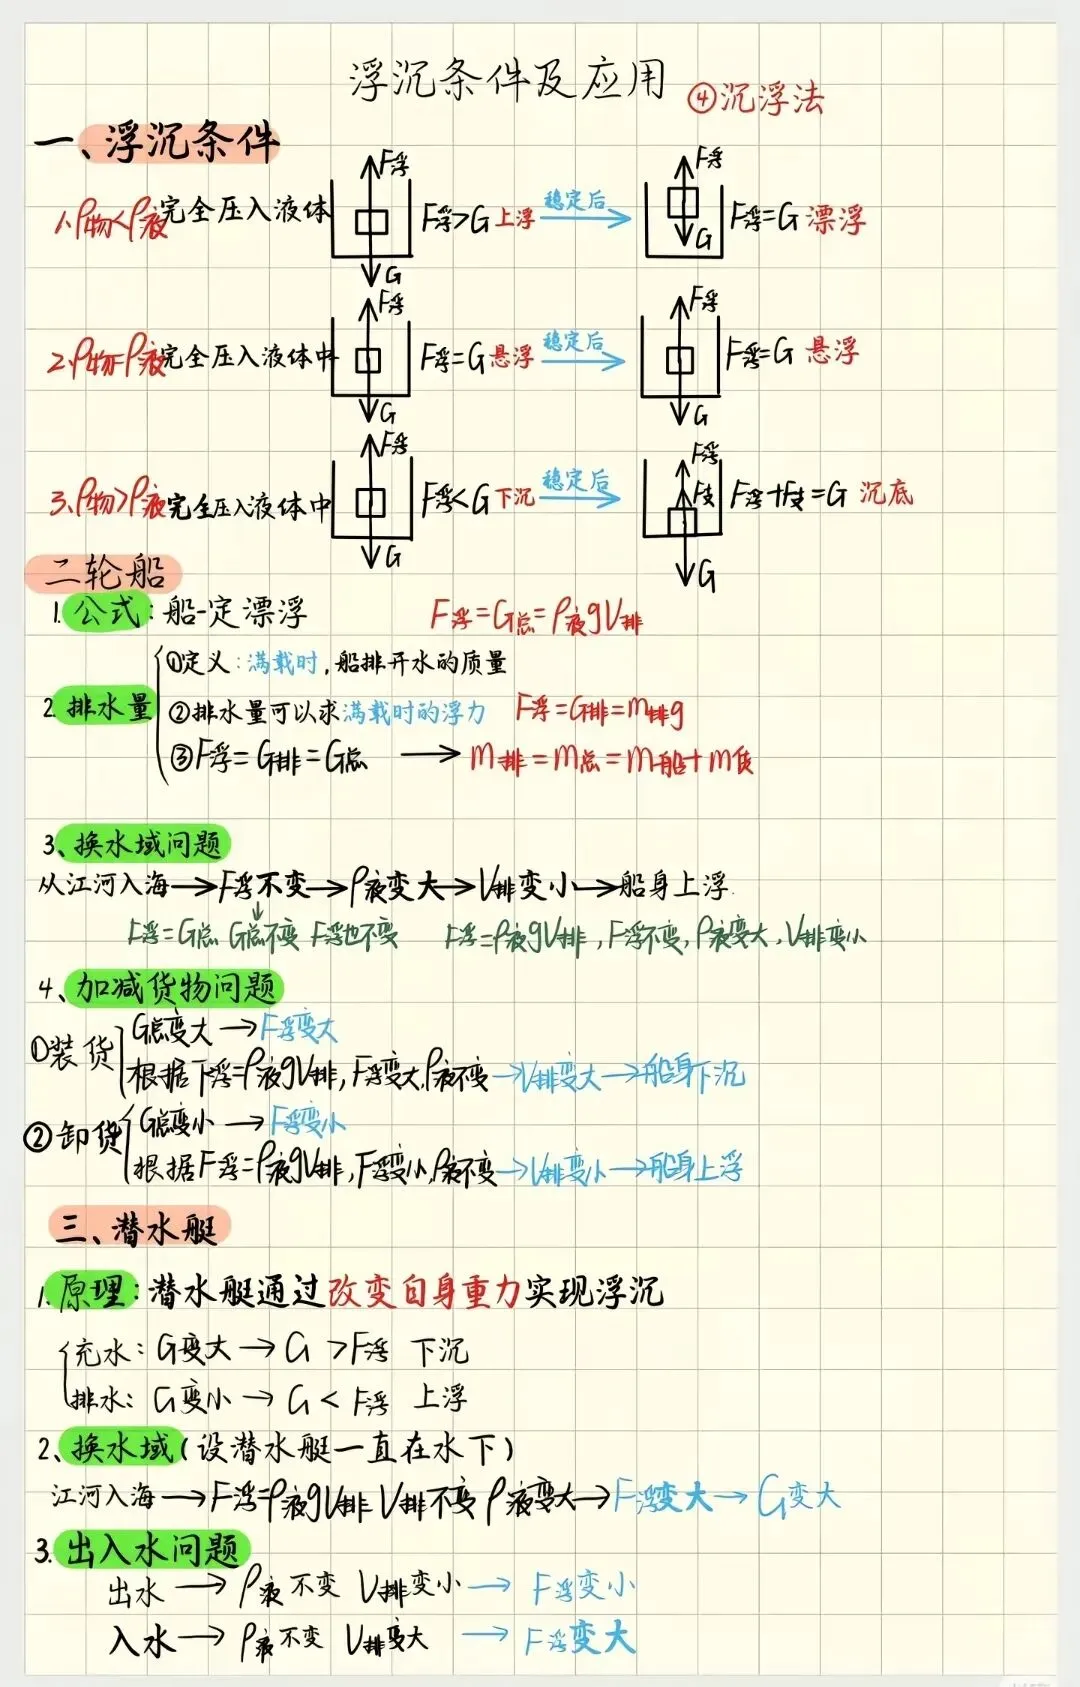 浮沉条件及应用 ④沉浮法
一、浮沉条件
1、ρ物<ρ液完全压入液体 F浮 G F浮>G 上浮 稳定后 F浮 G F浮=G 漂浮
2、ρ物=ρ液完全压入液体中 F浮 G F浮=G 悬浮 稳定后 F浮 G F浮=G 悬浮
3、ρ物>ρ液完全压入液体中 F浮 G F浮<G 下沉 稳定后 F浮 F支 G F浮+F支=G 沉底
二轮船
1.公式:船一定漂浮 F浮=G总=ρ液gV排
2.排水量
①定义:满载时,船排开水的质量
②排水量可以求满载时的浮力 F浮=G排=m排g
③F浮=G排=G总 → m排=m总=m船+m货
3、换水域问题
从江河入海→F浮不变→ρ液变大→V排变小→船身上浮.
↓
F浮=G总 G总不变 F浮也不变 F浮=ρ液gV排,F浮不变,ρ液变大,V排变小
4、加减货物问题
①装货
G总变大→F浮变大
根据F浮=ρ液gV排,F浮变大,ρ液不变→V排变大→船身下沉
②卸货
G总变小→F浮变小
根据F浮=ρ液gV排,F浮变小,ρ液不变→V排变小→船身上浮
三、潜水艇
1.原理:潜水艇通过改变自身重力实现浮沉
充水:G变大→G>F浮 下沉
排水:G变小→G<F浮 上浮
2、换水域(设潜水艇一直在水下)
江河入海→F浮=ρ液gV排 V排不变 ρ液变大→F浮变大→G变大
3.出入水问题
出水→ρ液不变 V排变小→F浮变小
入水→ρ液不变 V排变大→F浮变大